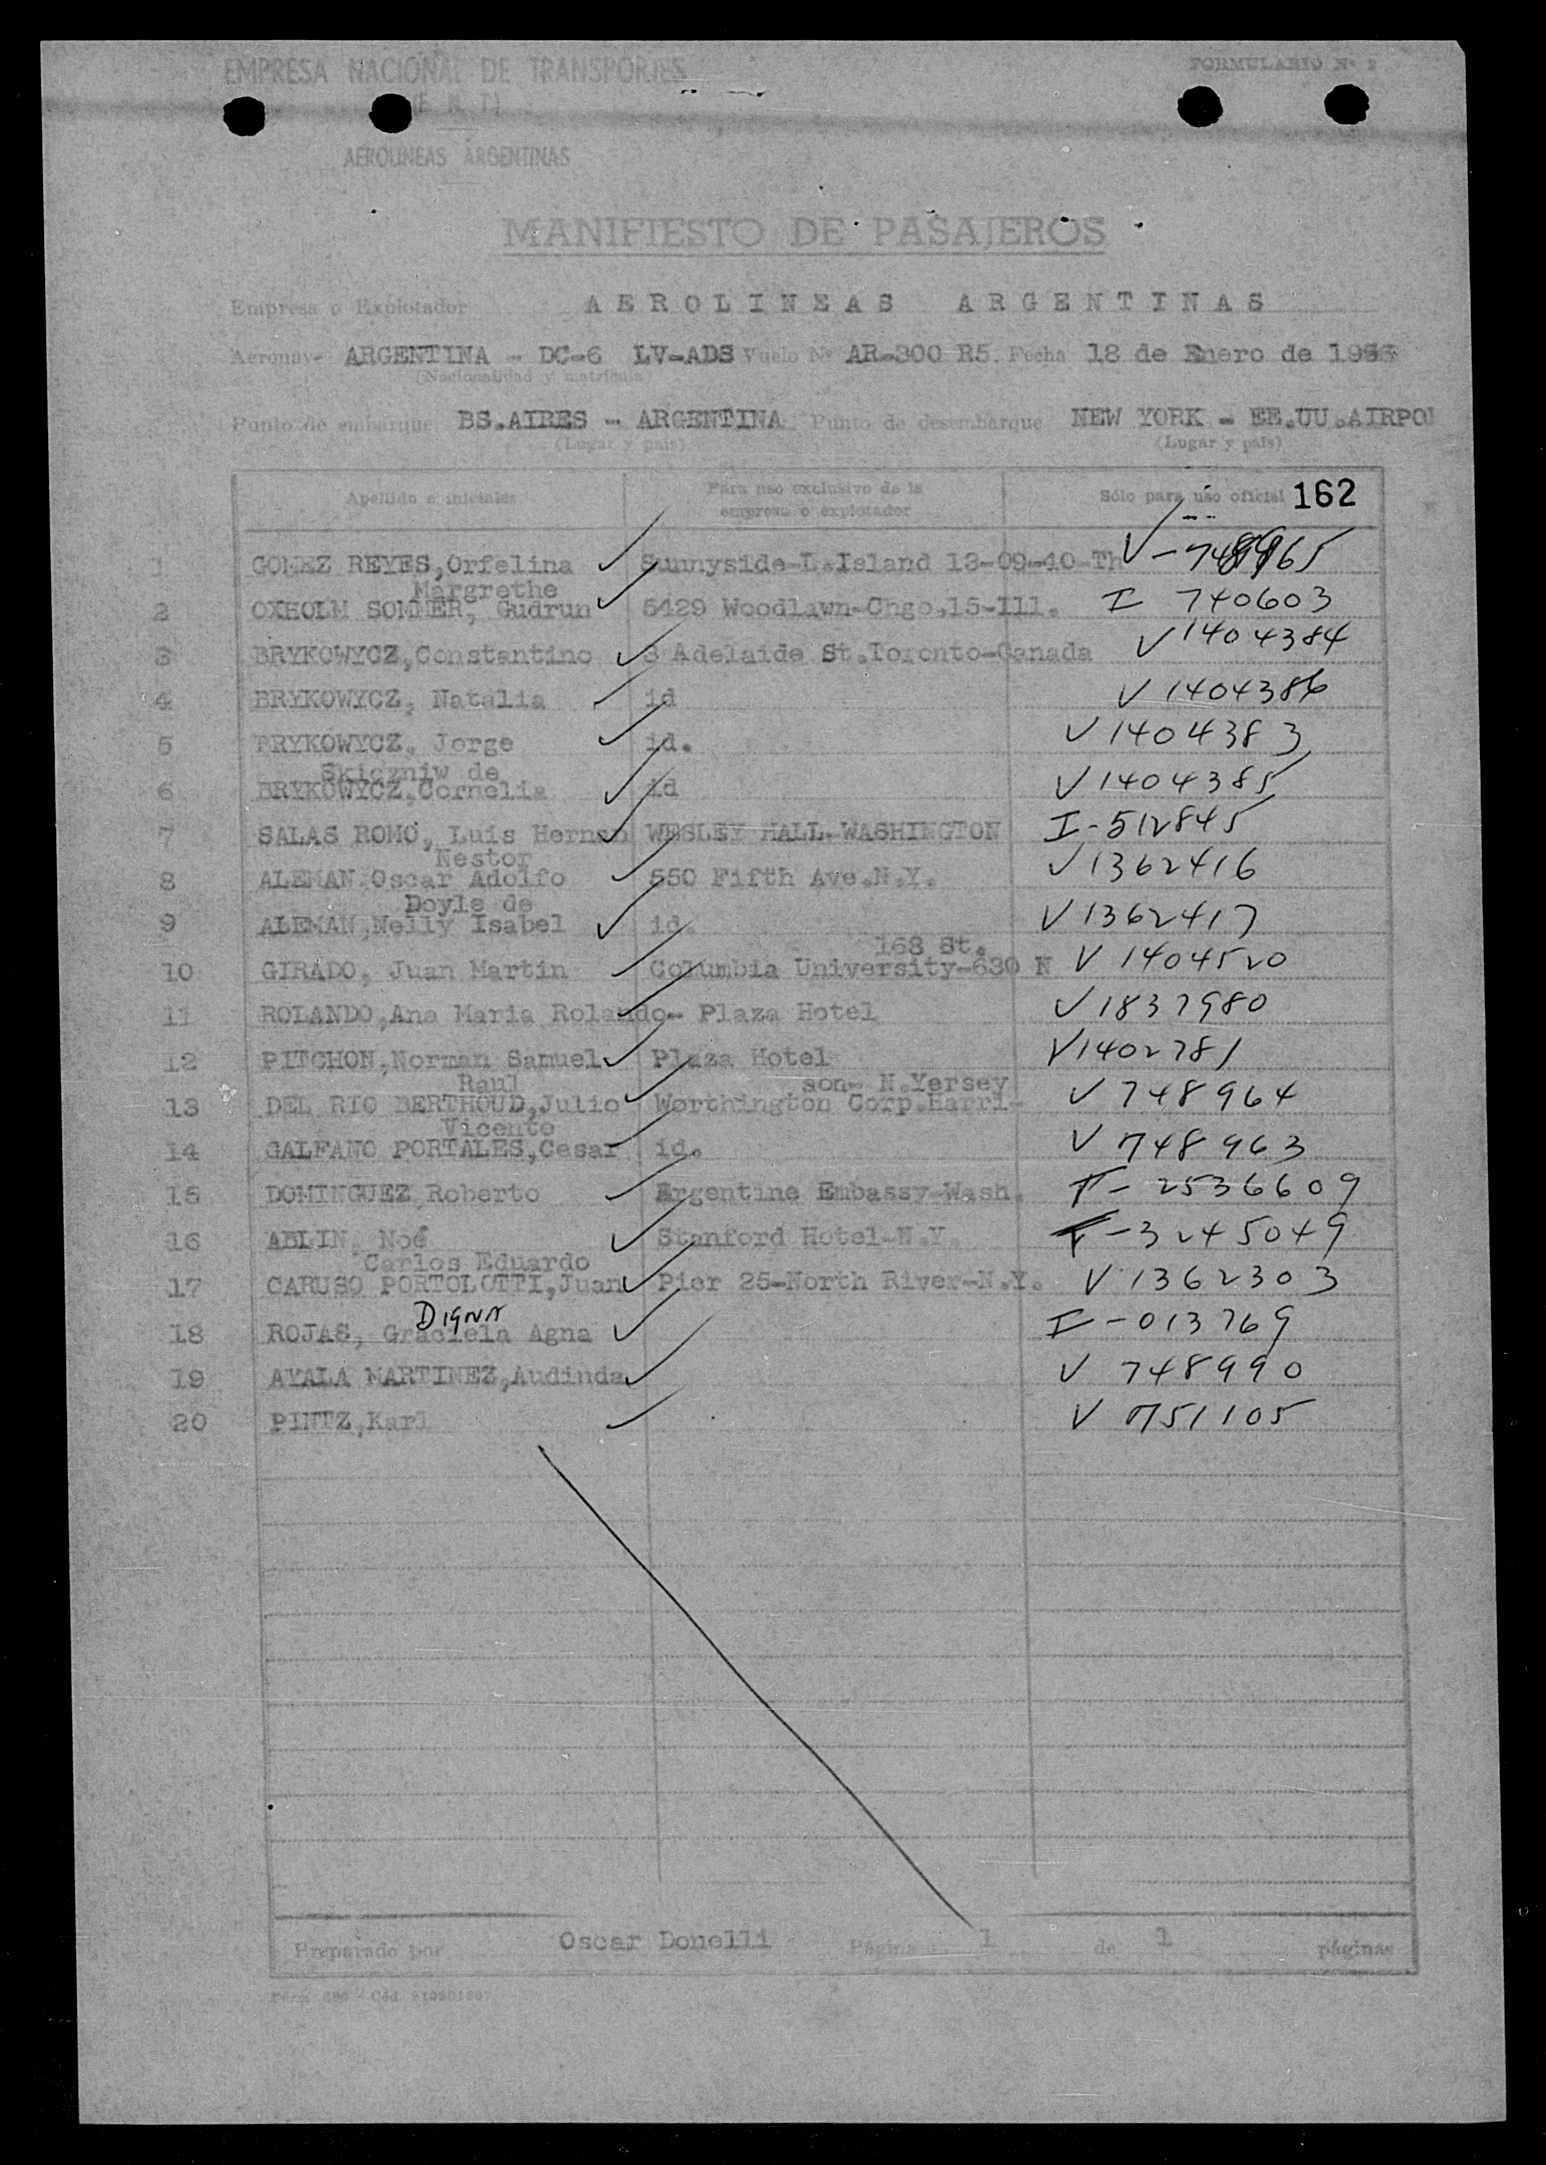 EMPRESA NACIONAL DE TRANSPORTES
FORMULARIO Nº 2
(E N T)
AEROLINEAS ARGENTINAS
MANIFIESTO DE PASAJEROS
Empresa o Explotador AEROLINEAS ARGENTINAS
Aeronave ARGENTINA - DC-6 LV-ADS Vuelo Nº AR-300 R5. Fecha 18 de Enero de
(Nacionalidad y matrícula)
Punto de embarque BS.AIRES - ARGENTINA Punto de desembarque NEW YORK - EE.UU.AIRPO
(Lugar y país) (Lugar y país)
Apellido e iniciales Para uso exclusivo de la empresa o explotador Sólo para uso oficial 162
1 GOMEZ REYES,Orfelina Sunnyside-L.Island 13-09-40-Th V-
Margrethe
2 OXHOLM SOMMER, Gudrun 5429 Woodlawn-Chgo.15-Ill. I 740603
3 BRYKOWYCZ,Constantino 3 Adelaide St.Toronto-Canada V 1404384
4 BRYKOWYCZ, Natalia id V 1404386
5 BRYKOWYCZ, Jorge id. V 1404383
Skiczniw de
6 BRYKOWYCZ,Cornelia id V 1404385
7 SALAS ROMO, Luis Hernan WESLEY HALL-WASHINGTON I-512845
Nestor
8 ALEMAN,Oscar Adolfo 550 Fifth Ave.N.Y. V 1362416
Doyle de
9 ALEMAN,Nelly Isabel id. V 1362417
168 St.
10 GIRADO, Juan Martin Columbia University-630 W V 1404520
11 ROLANDO,Ana Maria Rolando- Plaza Hotel V 1837980
12 PITCHON,Norman Samuel Plaza Hotel V 1402781
Raul son- N.Yersey
13 DEL RIO BERTHOUD,Julio Worthington Corp.Harri- V 748964
Vicente
14 GALFANO PORTALES,Cesar id. V 748963
15 DOMINGUEZ,Roberto Argentine Embassy-Wash. F- 2536609
16 ABLIN, Noé Stanford Hotel-N.Y. F-3245049
Carlos Eduardo
17 CARUSO PORTOLOTTI,Juan Pier 25-North River-N.Y. V 1362303
DIGNA
18 ROJAS, Graciela Agna I-013769
19 AYALA MARTINEZ,Audinda V 748990
20 PINTZ,Karl V 751105
Preparado por Oscar Donelli Página 1 de 1 páginas